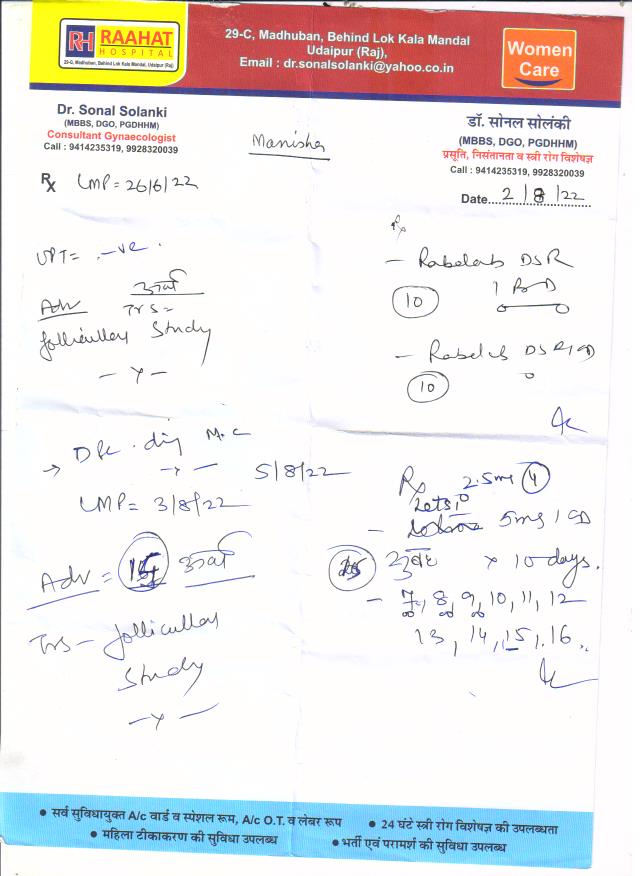 RH RAAHAT
HOSPITAL
29-C, Madhuban, Behind Lok Kala Mandal, Udaipur (Raj)
29-C, Madhuban, Behind Lok Kala Mandal
Udaipur (Raj),
Email : dr.sonalsolanki@yahoo.co.in
Women
Care
Dr. Sonal Solanki
(MBBS, DGO, PGDHHM)
Consultant Gynaecologist
Call : 9414235319, 9928320039
Manisha
डॉ. सोनल सोलंकी
(MBBS, DGO, PGDHHM)
प्रसूति, निसंतानता व स्त्री रोग विशेषज्ञ
Call : 9414235319, 9928320039
Date 2/8/22
Rx LMP = 26/6/22
UPT = -ve.
Adv
TVS =
follicular Study
- x -
Rx
DSR
1 BD
10
DSR 1 OD
10
M.C
5/8/22
LMP = 3/8/22
Adv =
TVS - follicular
Study
- x -
Rx 2.5mg 4
5mg 1 OD
x 10 days.
- 7, 8, 9, 10, 11, 12
13, 14, 15, 16
• सर्व सुविधायुक्त A/c वार्ड व स्पेशल रूम, A/c O.T. व लेबर रूप
• 24 घंटे स्त्री रोग विशेषज्ञ की उपलब्धता
• महिला टीकाकरण की सुविधा उपलब्ध
• भर्ती एवं परामर्श की सुविधा उपलब्ध